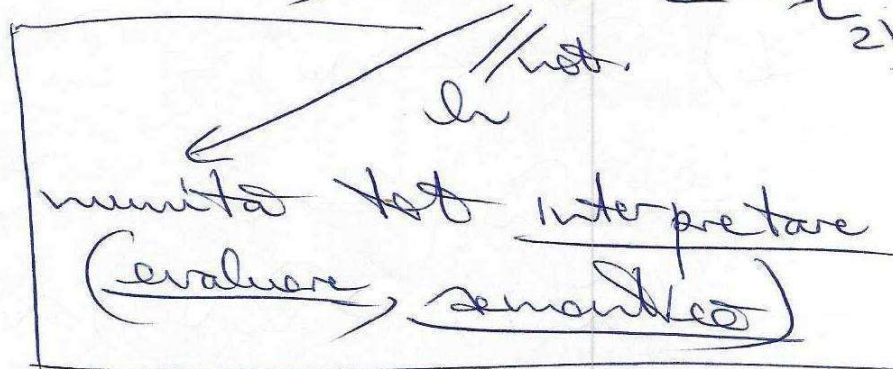 // not.
h
numită tot interpretare
(evaluare, semantică)